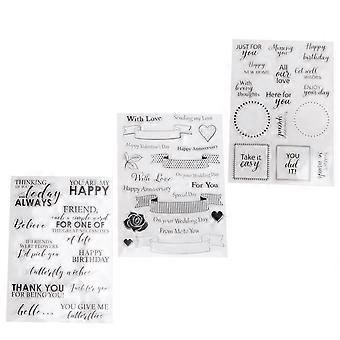 JUST FOR
YOU
Missing
you
Happy
birthday
Happy
NEW HOME
All
our
love
Get well
wishes
With
loving
thoughts
Here for
you
ENJOY
your day
Take it
easy
YOU
did
IT!
With Love
Sending my Love
Happy Valentine's Day
Happy Anniversary
Happy Anniversary
With Love
For You
On your Wedding Day
Special Day
On your Wedding Day
From Me to You
THINKING
OF YOU
today
ALWAYS
YOU ARE MY
HAPPY
Believe
FRIEND,
FOR ONE OF
THE GREAT BLESSINGS
of life
IF FRIENDS
WERE FLOWERS
I'd pick you
HAPPY
BIRTHDAY
butterfly wishes
THANK YOU
FOR BEING YOU!
Just for you
hello...
YOU GIVE ME
butterflies